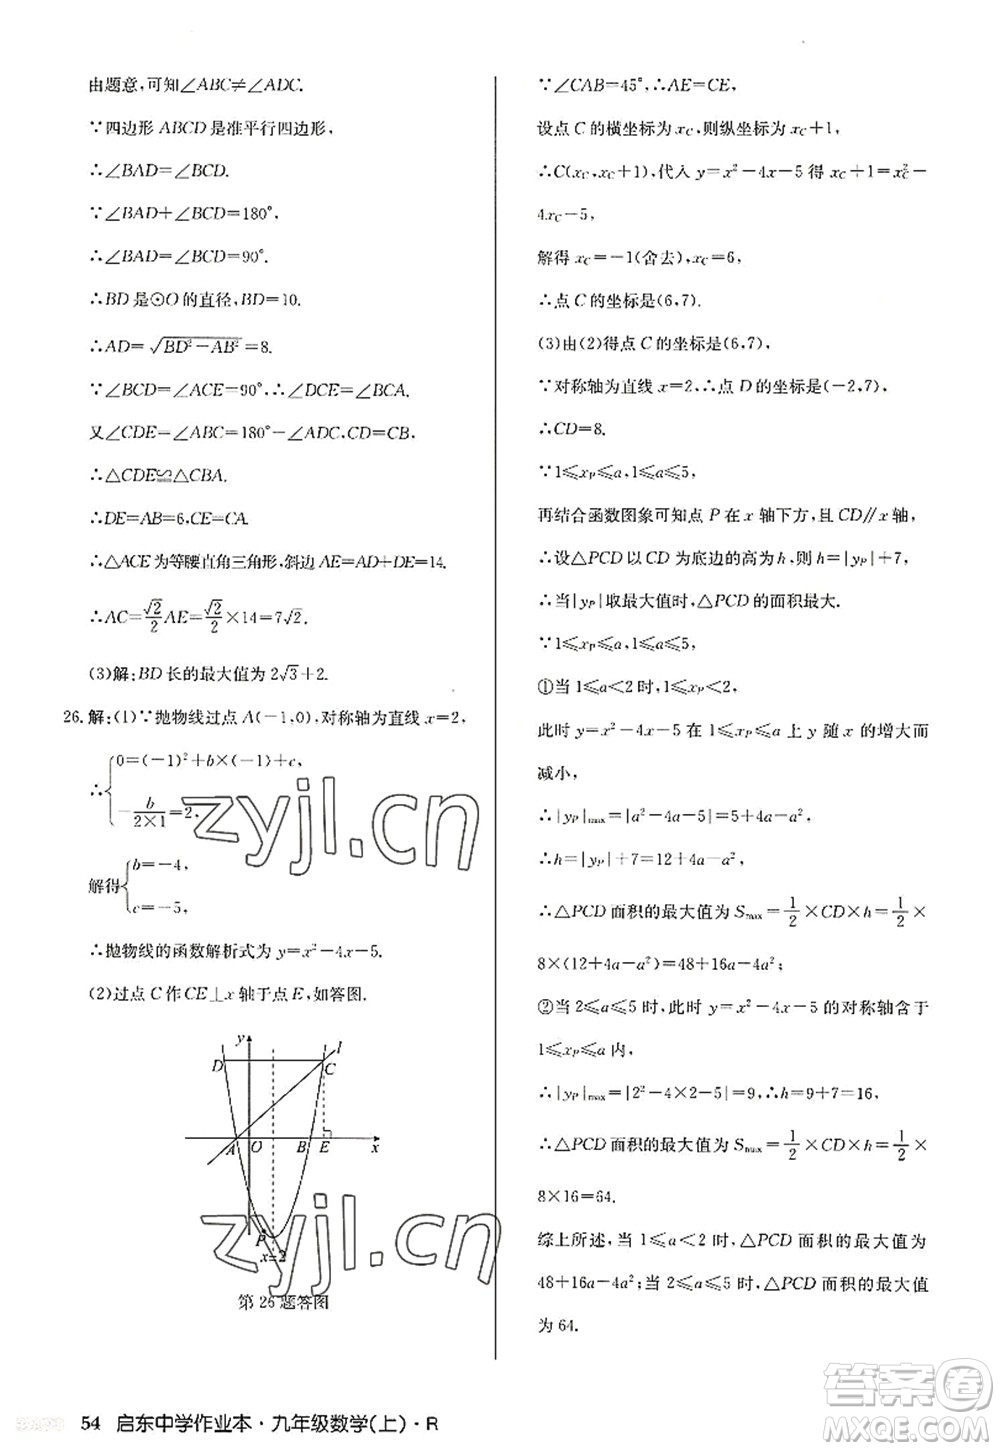 由题意,可知∠ABC≠∠ADC.
∵四边形 ABCD 是准平行四边形,
∴∠BAD=∠BCD.
∵∠BAD+∠BCD=180°,
∴∠BAD=∠BCD=90°.
∴BD是⊙O的直径,BD=10.
∴AD=√(BD²-AB²)=8.
∵∠BCD=∠ACE=90°,∴∠DCE=∠BCA.
又∠CDE=∠ABC=180°-∠ADC,CD=CB,
∴△CDE≌△CBA.
∴DE=AB=6,CE=CA.
∴△ACE为等腰直角三角形,斜边AE=AD+DE=14.
∴AC=√2/2 AE=√2/2×14=7√2.
(3)解:BD长的最大值为2√3+2.
26.解:(1)∵抛物线过点A(-1,0),对称轴为直线x=2,
∴{0=(-1)²+b×(-1)+c,
-b/(2×1)=2,
解得{b=-4,
c=-5,
∴抛物线的函数解析式为y=x²-4x-5.
(2)过点C作CE⊥x轴于点E,如答图.
y
l
D
C
A O B E x
P
x=2
第26题答图
∵∠CAB=45°,∴AE=CE.
设点C的横坐标为x_C,则纵坐标为x_C+1,
∴C(x_C,x_C+1),代入 y=x²-4x-5 得 x_C+1=x_C²-
4x_C-5,
解得x_C=-1(舍去),x_C=6,
∴点C的坐标是(6,7).
(3)由(2)得点C的坐标是(6,7),
∵对称轴为直线x=2,∴点D的坐标是(-2,7),
∴CD=8.
∵1≤x_P≤a,1≤a≤5,
再结合函数图象可知点P在x轴下方,且CD∥x轴,
∴设△PCD以CD为底边的高为h,则h=|y_P|+7,
∴当|y_P|取最大值时,△PCD的面积最大.
∵1≤x_P≤a,1≤a≤5,
①当1≤a<2时,则1≤x_P≤a<2,
此时 y=x²-4x-5 在1≤x_P≤a 上 y 随 x 的增大而
减小,
∴|y_P|max=|a²-4a-5|=5+4a-a²,
∴h=|y_P|+7=12+4a-a²,
∴△PCD面积的最大值为Smax=1/2×CD×h=1/2×
8×(12+4a-a²)=48+16a-4a²;
②当2≤a≤5时,此时y=x²-4x-5的对称轴含于
1≤x_P≤a内,
∴|y_P|max=|2²-4×2-5|=9,∴h=9+7=16,
∴△PCD面积的最大值为Smax=1/2×CD×h=1/2×
8×16=64.
综上所述,当1≤a<2时,△PCD面积的最大值为
48+16a-4a²;当2≤a≤5时,△PCD面积的最大值
为64.
zyjl.cn
zyjl.cn
答案圈
MXQE.COM
54 启东中学作业本·九年级数学(上)·R